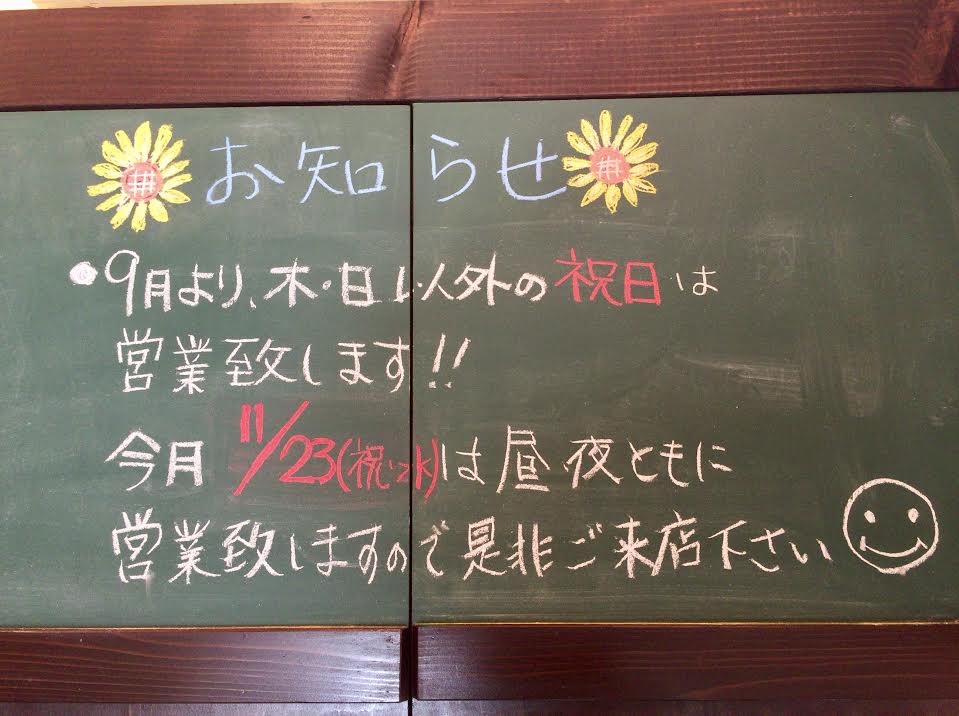 お知らせ
●9月より、木・日以外の祝日は
営業致します!!
今月 11/23(祝・水)は昼夜ともに
営業致しますので是非ご来店下さい